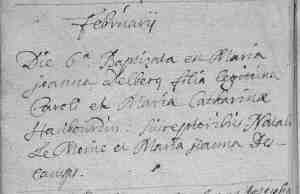 februarij
Die 6ª Baptizata est Maria
joanna Delberq filia legitima
Caroli et Maria Catharinæ
Harbourdin: susceptoribus Natali
Le Moine et Maria joanna Des-
camps.